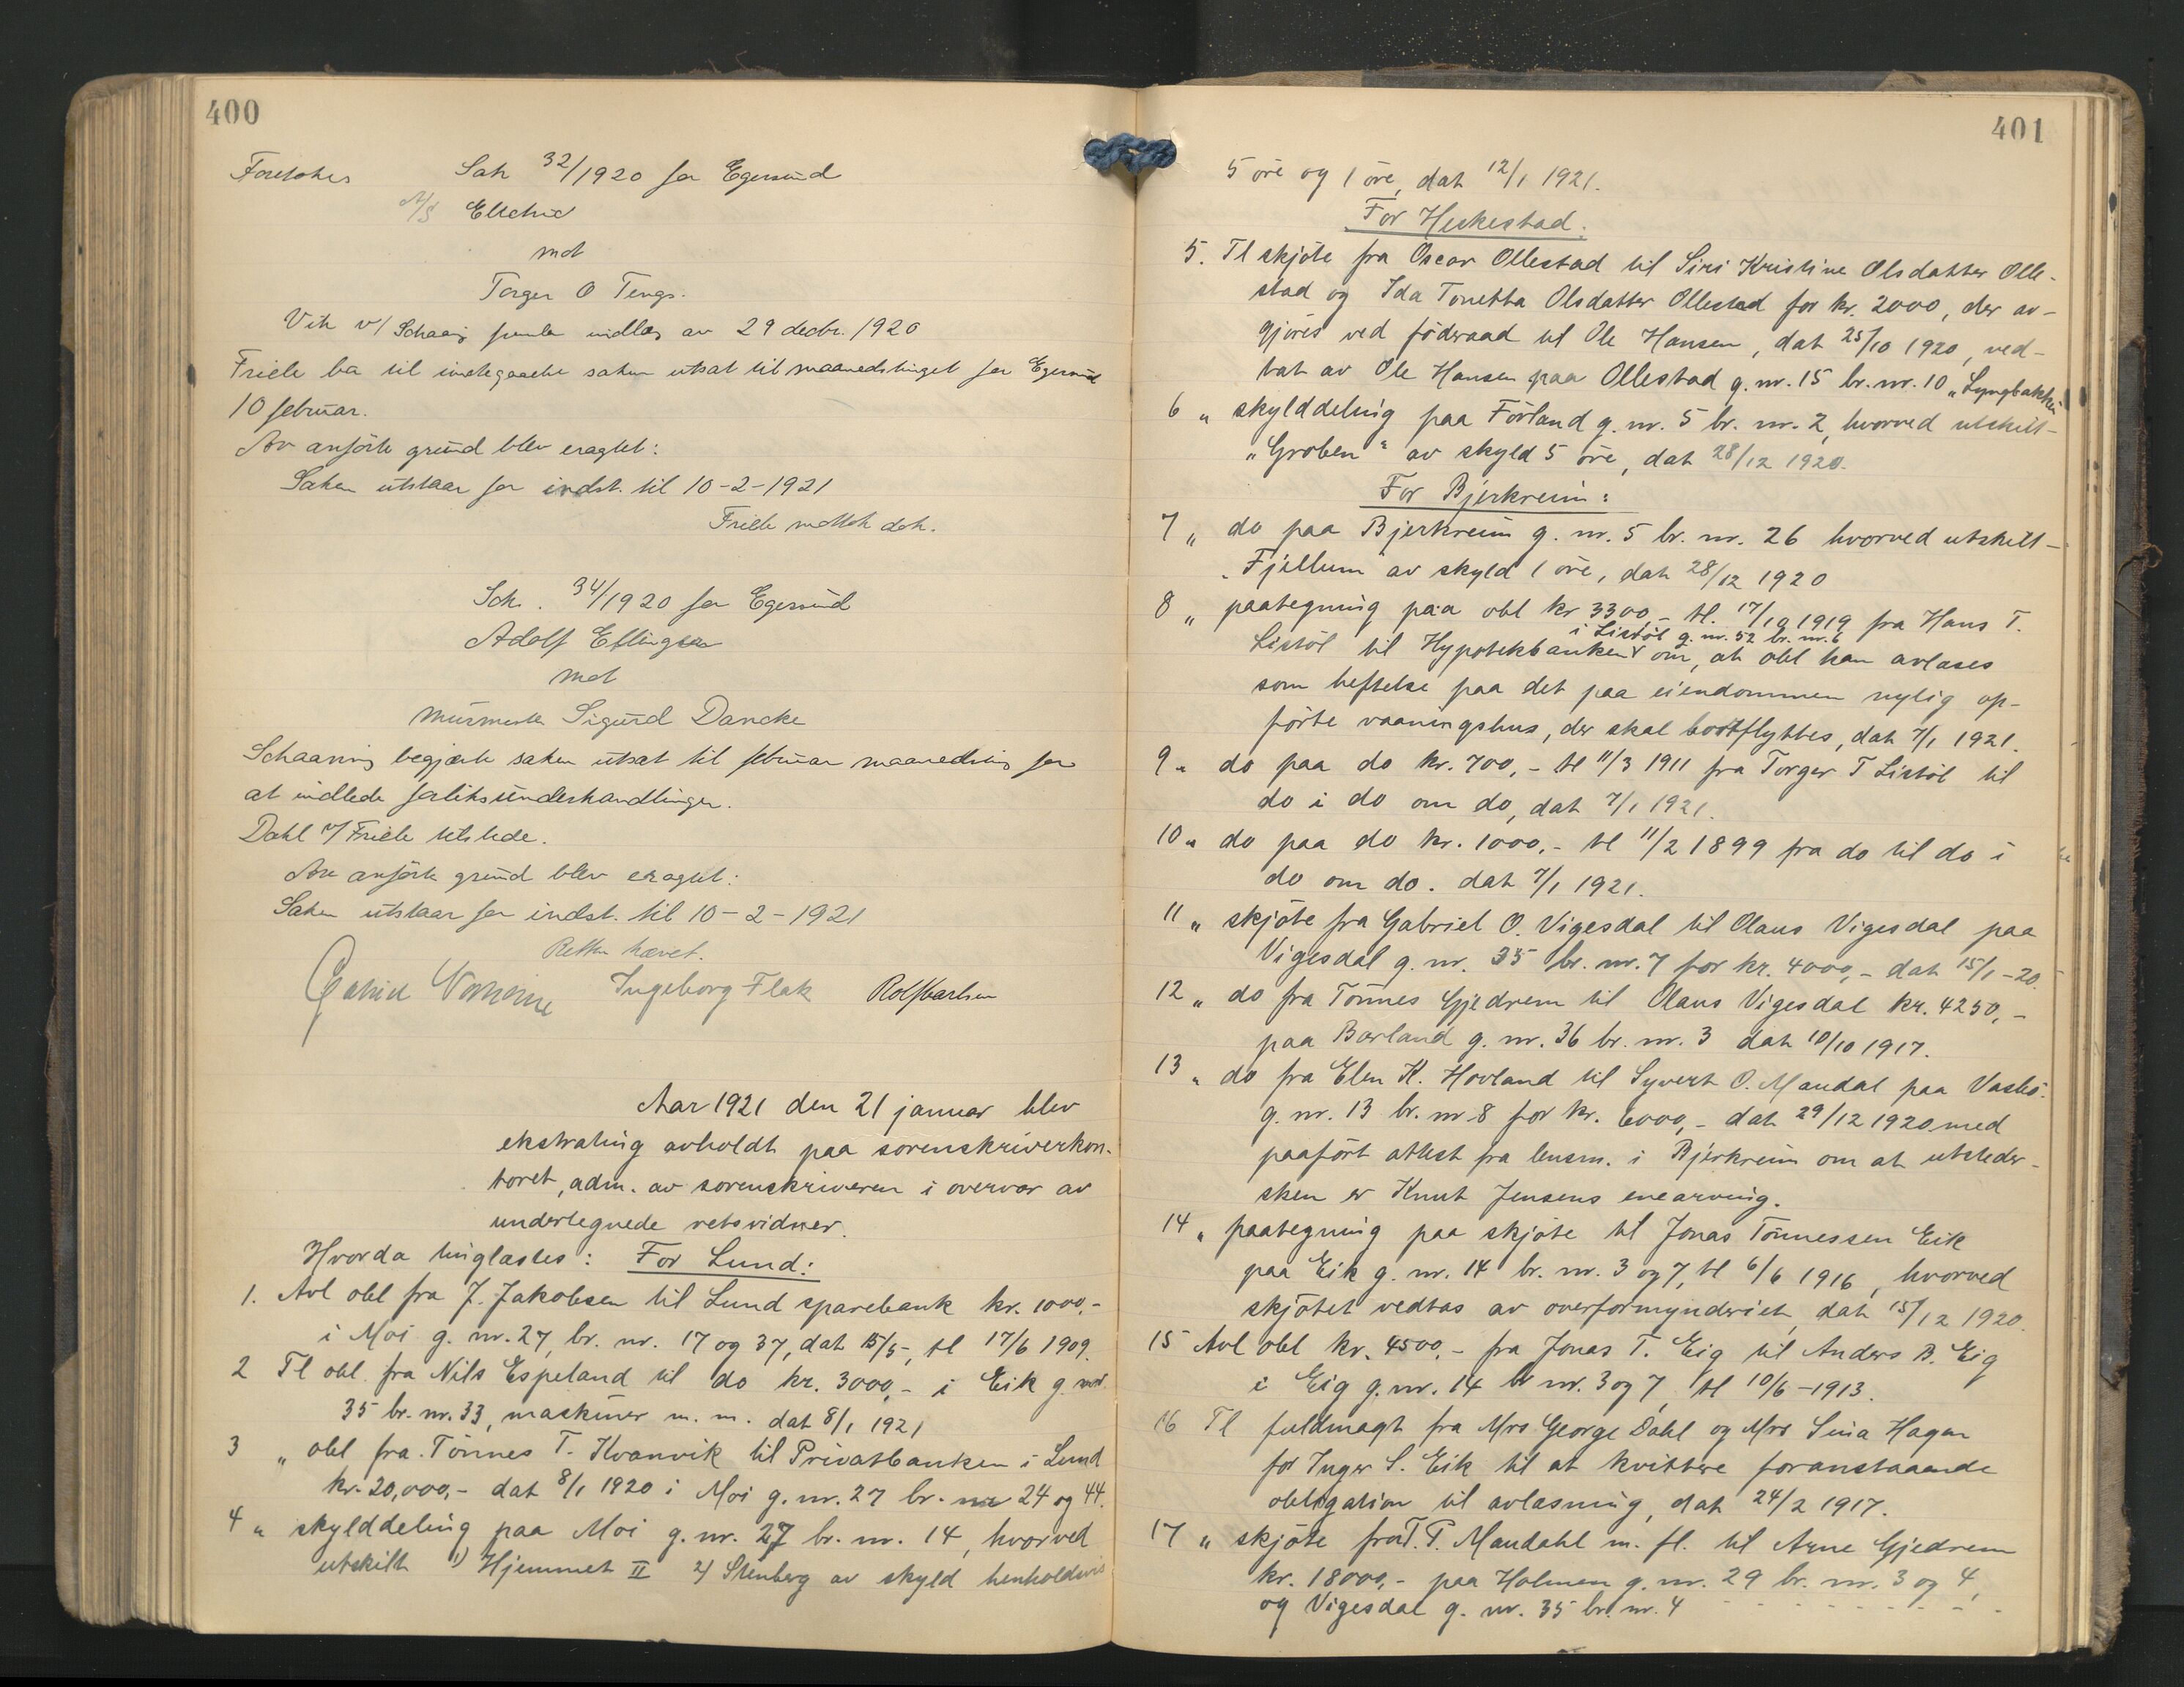 400
Foretokes Sak 32/1920 for Egersund
A/S Electric
mot
Torger O Tengs.
Vik v/ Schaaning indlæg av 29 decbr. 1920
Friele ba til imøtegaaelse saken utsat til maanedstinget for Egersund
10 februar.
Av anförte grund blev eragtet:
Saken utstaar for indst. til 10-2-1921
Friele mottok dok.
Sak. 34/1920 for Egersund
Adolf Ellingsen
mot
murmester Sigurd Dancke
Schaaning begjærte saken utsat til februar maanedsting for
at indlede forliksunderhandlinger.
Dahl v/ Friele tilstede.
Av anförte grund blev eragtet:
Saken utstaar for indst. til 10-2-1921
Retten hævet.
Ingeborg Flak Rolf Carlsen
Aar 1921 den 21 januar blev
ekstrating avholdt paa sorenskriverkon-
toret, adm. av sorenskriveren i overvær av
undertegnede retsvidner.
Hvorda tinglæstes: For Lund:
1. Avl obl fra J. Jakobsen til Lund sparebank kr. 1000,-
i Moi g. nr. 27, br. nr. 17 og 37, dat 15/5-, tl 17/6 1909.
2 Tl obl. fra Nils Espeland til do kr. 3000,- i Eik g nr.
35 br. nr. 33, maskiner m. m. dat 8/1 1921
3 " obl fra Tönnes T. Kvanvik til Privatbanken i Lund
kr. 20,000,- dat 8/1 1920 i Moi g. nr. 27 br. nr 24 og 44.
4 " skylddeling paa Moi g. nr. 27 br. nr. 14, hvorved
utskilt 1) Hjemmet II 2) Stenberg av skyld henholdsvis
401
5 öre og 1 öre, dat 12/1 1921.
For Heskestad.
5. Tl skjöte fra Oscar Ollestad til Siri Kristine Olsdatter Olle-
stad og Ida Tonetta Olsdatter Ollestad for kr. 2000, der av-
gjöres ved föderaad til Ole Hansen, dat 25/10 1920, ved-
tat av Ole Hansen paa Ollestad g. nr. 15 br. nr. 10 "Lyngbakken
6 " skylddeling paa Förland g. nr. 5 br. nr. 2, hvorved utskilt-
"Groben" av skyld 5 öre, dat 28/12 1920.
For Bjerkreim:
7 " do paa Bjerkreim g. nr. 5 br. nr. 26 hvorved utskilt-
"Fjellum av skyld 1 öre, dat 28/12 1920
8 " paategning paa obl kr 3300,- tl. 17/10 1919 fra Hans T.
i Listöl g. nr. 52 br. nr. 6
Listöl til Hypotekbanken om, at obl kan avlæses
som heftelse paa det paa eiendommen nylig op-
förte vaaningshus, der skal bortflyttes, dat 7/1 1921.
9 " do paa do kr. 700,- tl 11/3 1911 fra Torger T Listöl til
do i do om do, dat 7/1 1921.
10 " do paa do kr. 1000,- tl 11/2 1899 fra do til do i
do om do. dat 7/1 1921.
11 " skjöte fra Gabriel O. Vigesdal til Olaus Vigesdal paa
Vigesdal g. nr. 35 br. nr. 7 for kr. 4000,- dat 15/1-20.
12 " do fra Tönnes Gjedrem til Olaus Vigesdal kr. 4250,-
paa Börland g. nr. 36 br. nr. 3 dat 10/10 1917.
13 " do fra Elen K. Hovland til Syvert O. Maudal paa Vasbö.
g. nr. 13 br. nr 8 for kr. 6000,- dat 29/12 1920 med
paafört attest fra lensm. i Bjerkreim om at utsteder-
sken er Knut Jensens enearving.
14 " paategning paa skjöte til Jonas Tönnessen Eik
paa Eik g. nr. 14 br. nr. 3 og 7, tl 6/6 1916, hvorved
skjötet vedtas av overformynderiet, dat 15/12 1920.
15 Avl obl kr. 4500,- fra Jonas T. Eig til Anders B. Eig
i Eig g. nr. 14 br nr. 3 og 7, tl 10/6-1913.
16 Tl fuldmagt fra Mrs George Dahl og Mrs Sina Hagan
for Inger S. Eik til at kvittere foranstaaende
obligation til avlæsning, dat 24/2 1917.
17 " skjöte fra T. P. Maudahl m. fl. til Arne Gjedrem
kr. 18000,- paa Holmen g. nr. 29 br. nr. 3 og 4,
og Vigesdal g. nr. 35 br. nr. 4